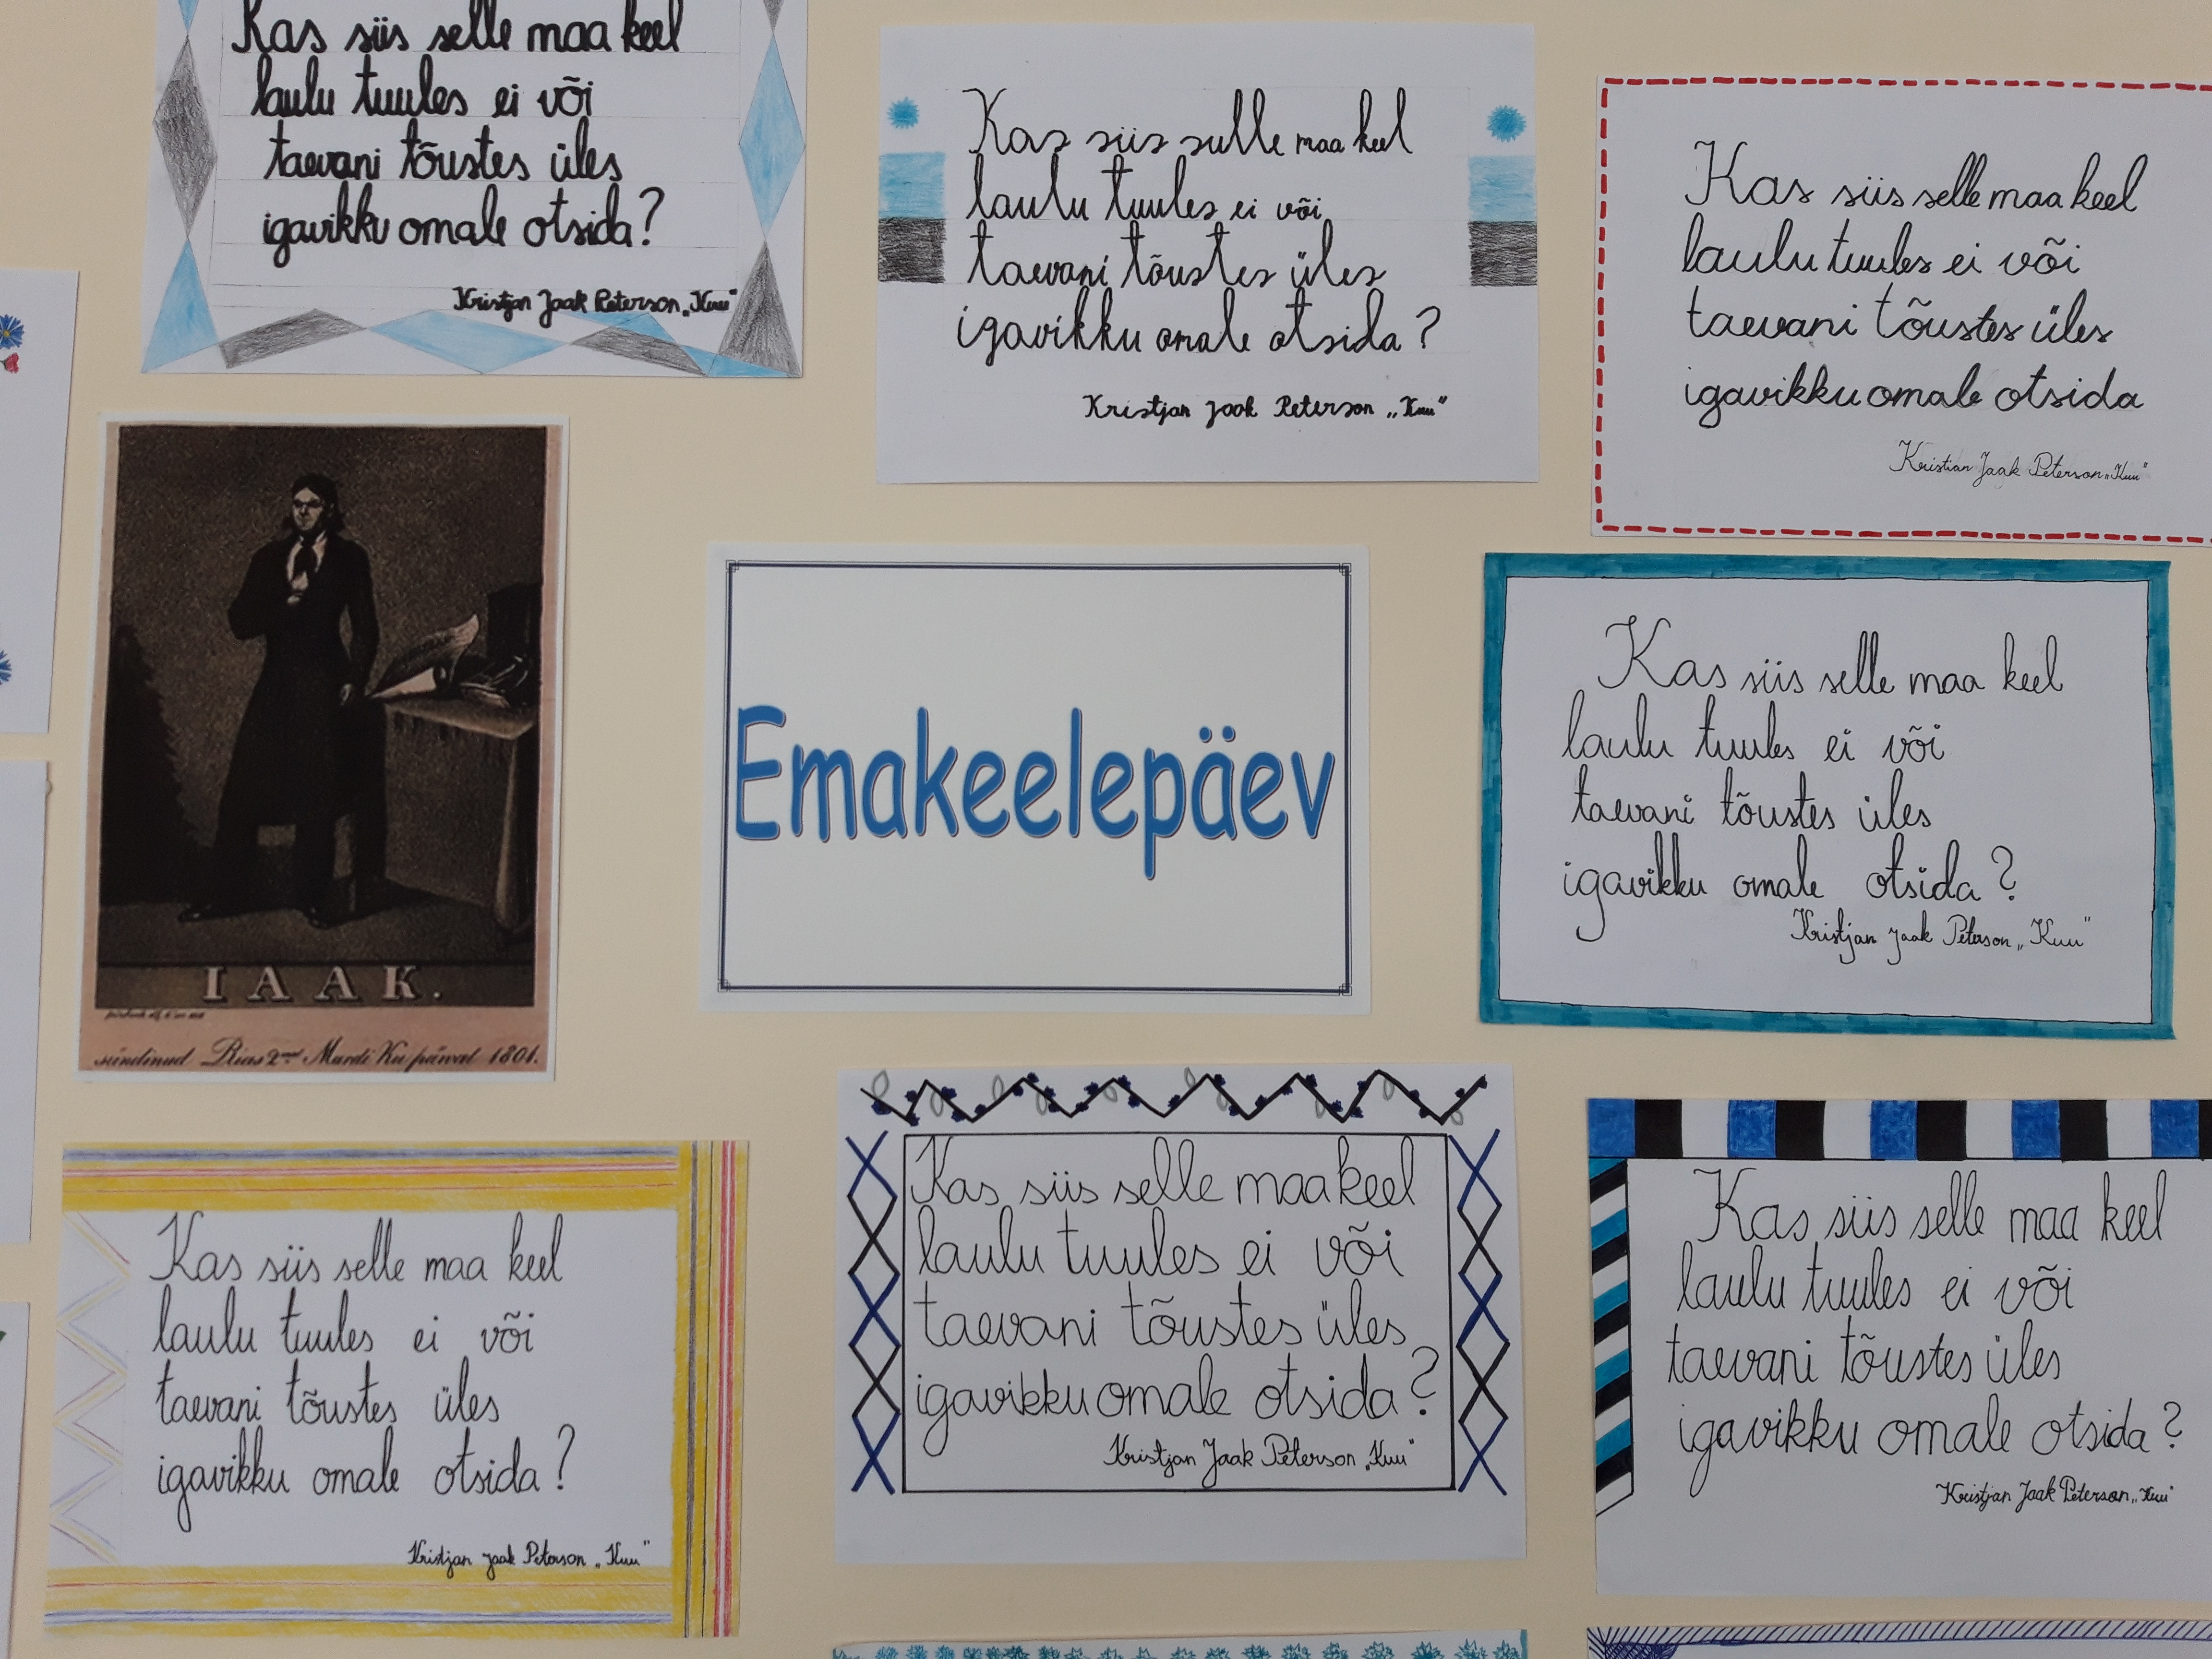 Kas siis selle maa keel
laulu tuules ei või
taevani tõustes üles
igavikku omale otsida?
Kristjan Jaak Peterson „Kuu"
Kas siis sulle maa keel
laulu tuules ei või
taevani tõustes üles
igavikku omale otsida?
Kristjan Jaak Peterson „Kuu"
Kas siis selle maa keel
laulu tuules ei või
taevani tõustes üles
igavikku omale otsida
Kristian Jaak Peterson „Kuu"
IAAK.
sündinud Rias 2 Mardi Ku päiwal 1801.
Emakeelepäev
Kas siis selle maa keel
laulu tuules ei või
taevani tõustes üles
igavikku omale otsida?
Kristjan Jaak Peterson „Kuu"
Kas siis selle maa keel
laulu tuules ei või
taevani tõustes üles
igavikku omale otsida?
Kristjan Jaak Peterson „Kuu"
Kas siis selle maa keel
laulu tuules ei või
taevani tõustes üles
igavikku omale otsida?
Kristjan Jaak Peterson „Kuu"
Kas siis selle maa keel
laulu tuules ei või
taevani tõustes üles
igavikku omale otsida?
Kristjan Jaak Peterson „Kuu"